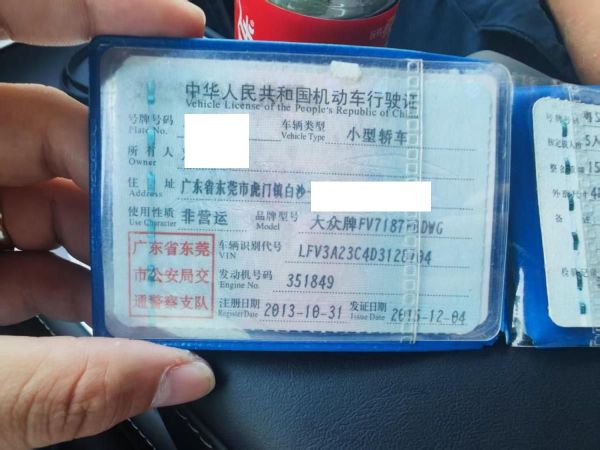 中华人民共和国机动车行驶证
Vehicle License of the People's Republic of
号牌号码
Plate No.
车辆类型
Vehicle Type
小型轿车
所有人
Owner
住址
Address
广东省东莞市虎门镇白沙
使用性质
Use Character
非营运
品牌型号
Model
大众牌FV7187
DWG
广东省东莞
市公安局交
通警察支队
车辆识别代号
VIN
LFV3A23C4D312
发动机号码
Engine No.
351849
注册日期
RegisterDate
2013-10-31
发证日期
Issue Date
12-04
号牌号
核定载人数
5人
整备质量
外廓尺寸
备
检验记